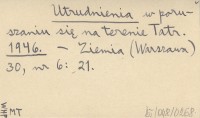 Utrudnienia w poru-
szaniu się na terenie Tatr.
1946. – Ziemia (Warszawa)
30, nr 6 : 21.
MT